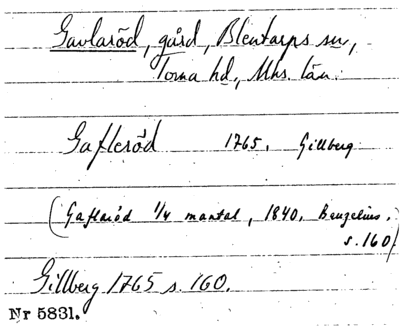 Gavlaröd, gård, Blentarps sn,
Torna hd, Mhs. län.
Gafleröd 1765. Gillberg
(Gaflaröd 1/4 mantal, 1840, Benzelius,
s. 160)
Gillberg 1765 s. 160.
Nr 5831.